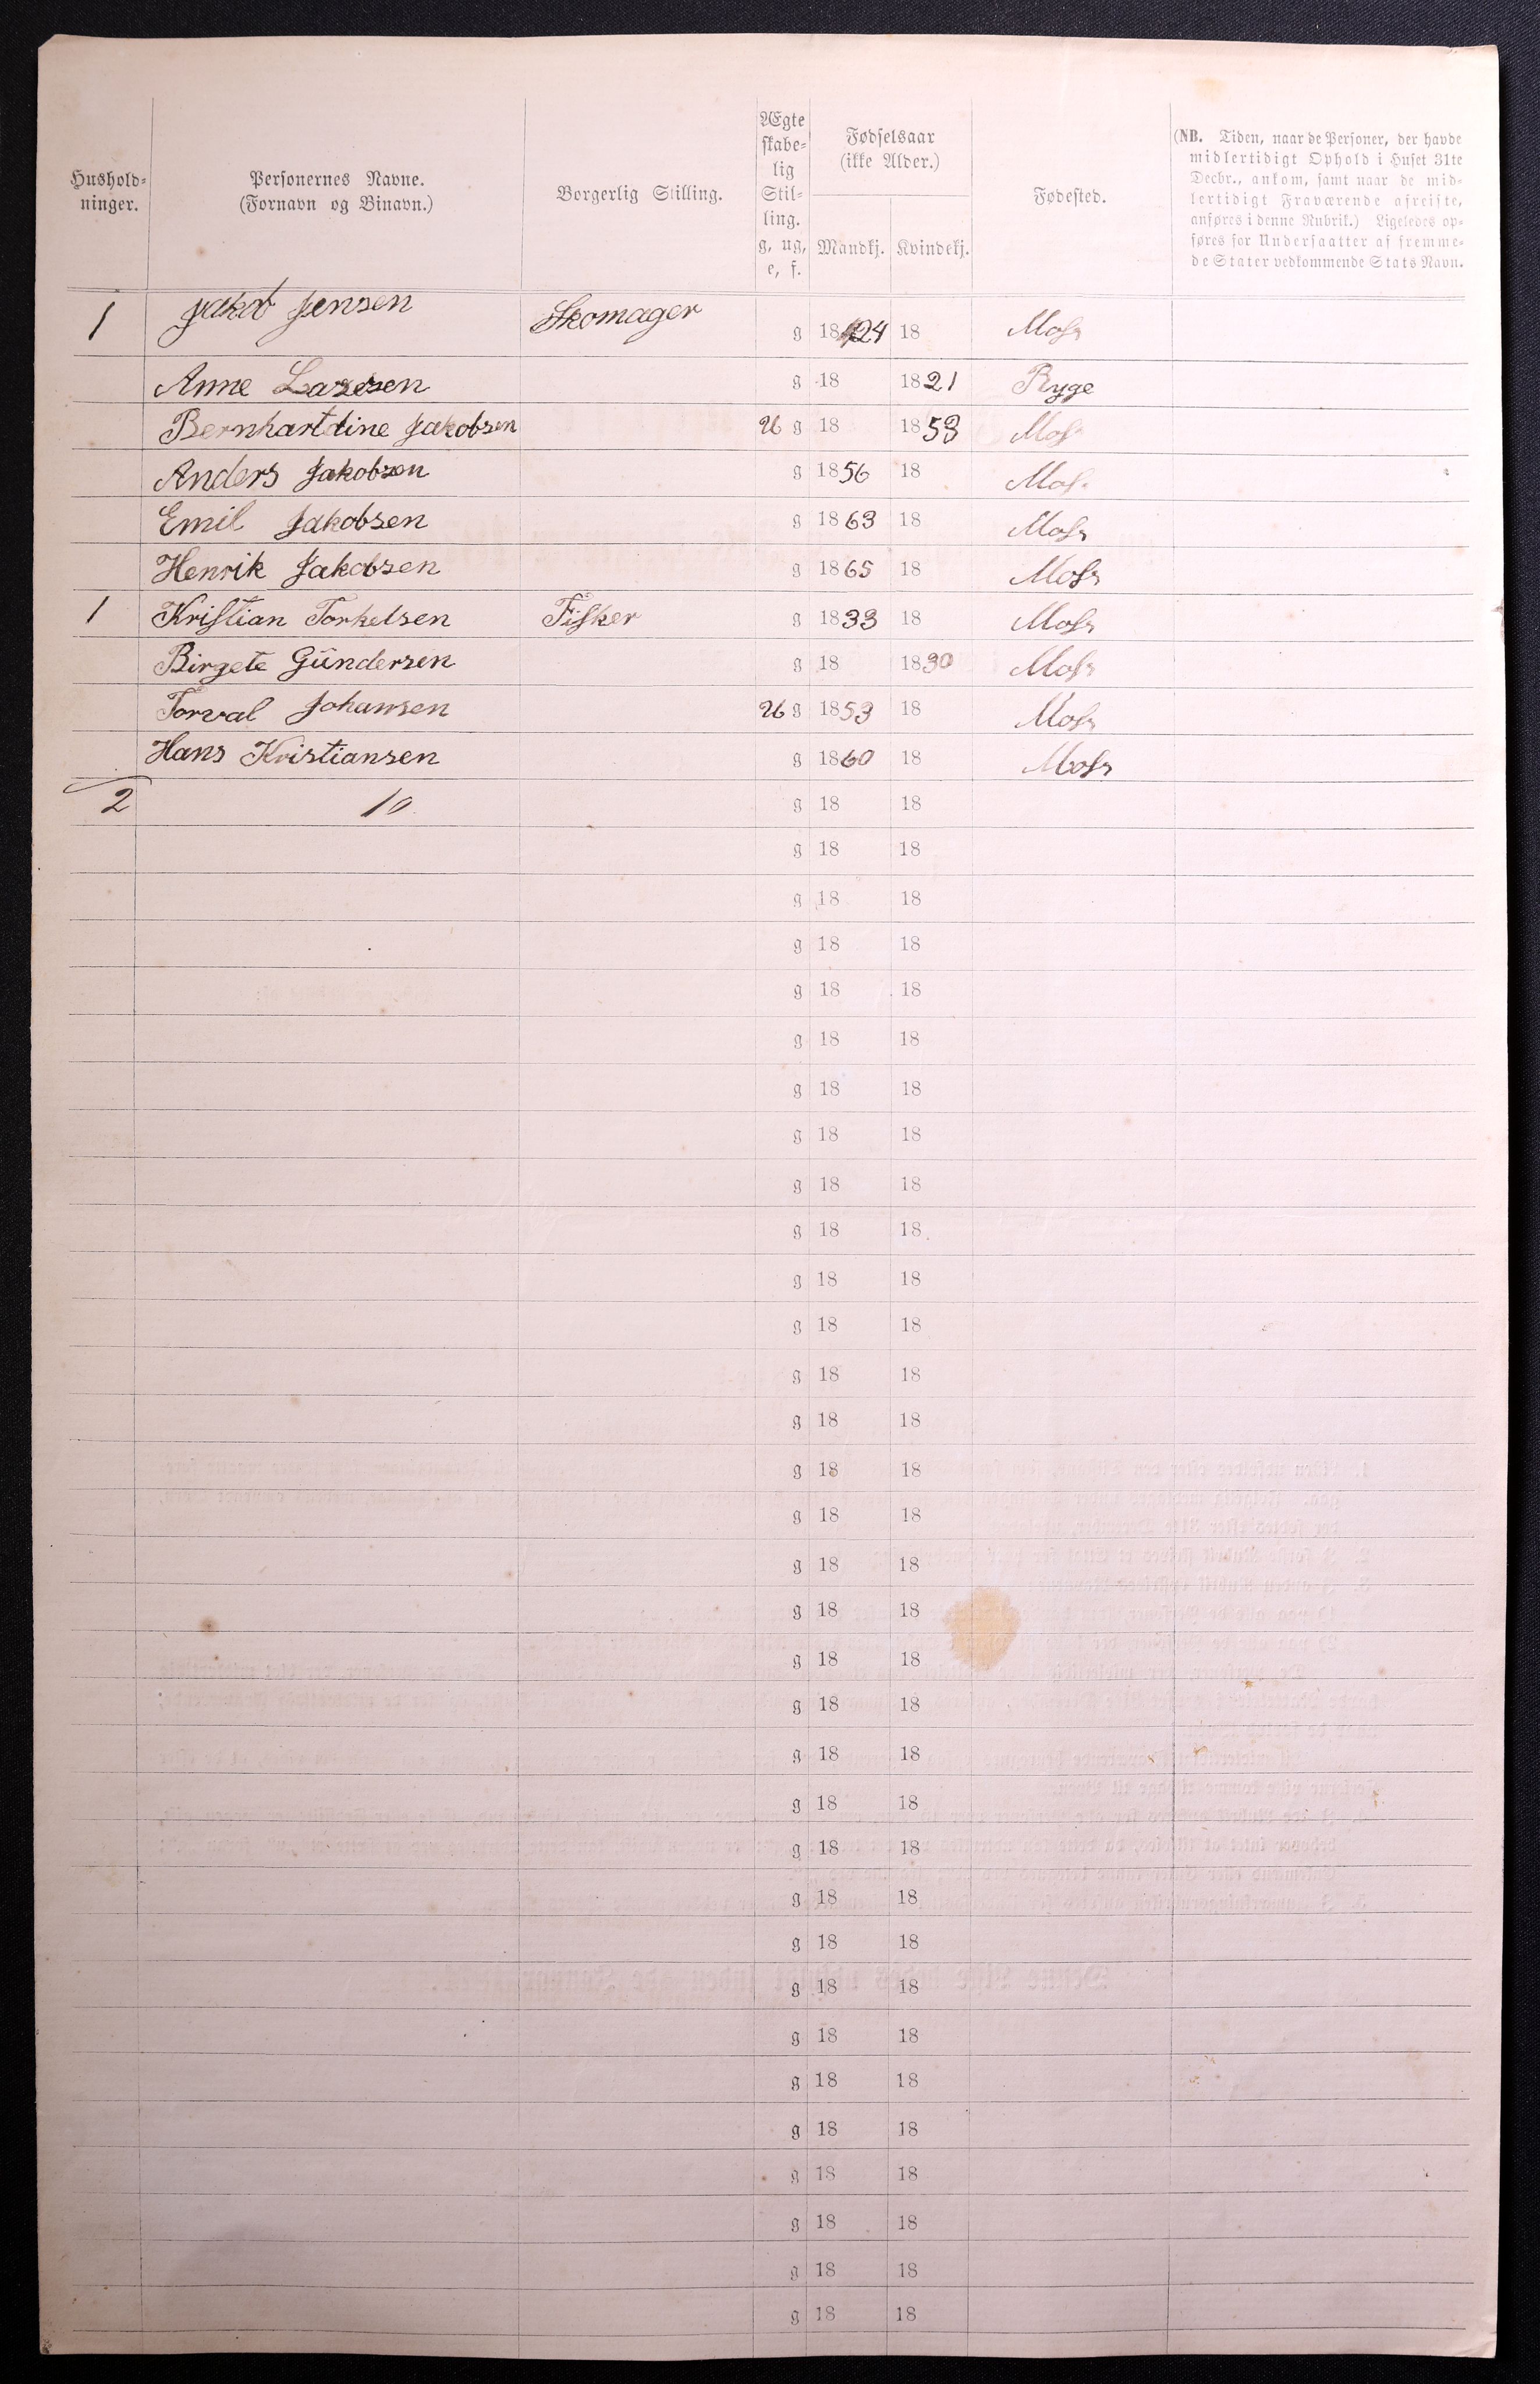 Hushold-
ninger.
Personernes Navne.
(Fornavn og Binavn.)
Borgerlig Stilling.
Ægte
skabe-
lig
Stil-
ling.
g, ug,
e, f.
Fødselsaar
(ikke Alder.)
Mandkj. Kvindekj.
Fødested.
(NB. Tiden, naar de Personer, der havde
midlertidigt Ophold i Huset 31te
Decbr., ankom, samt naar de mid-
lertidigt Fraværende afreiste,
anføres i denne Rubrik.) Ligeledes op-
føres for Undersaatter af fremme-
de Stater vedkommende Stats Navn.
1 Jakob Jensen Skomager g 1824 18 Moss
Anne Larssen g 18 1821 Rygge
Bernhartdine Jakobsen U g 18 1853 Moss
Anders Jakobsen g 1856 18 Moss
Emil Jakobsen g 1863 18 Moss
Henrik Jakobsen g 1865 18 Moss
1 Kristian Torkelsen Fisker g 1833 18 Moss
Birgete Gündersen g 18 1830 Moss
Torval Johansen U g 1853 18 Moss
Hans Kristiansen g 1860 18 Moss
2 10 g 18 18
g 18 18
g 18 18
g 18 18
g 18 18
g 18 18
g 18 18
g 18 18
g 18 18
g 18 18
g 18 18
g 18 18
g 18 18
g 18 18
g 18 18
g 18 18
g 18 18
g 18 18
g 18 18
g 18 18
g 18 18
g 18 18
g 18 18
g 18 18
g 18 18
g 18 18
g 18 18
g 18 18
g 18 18
g 18 18
g 18 18
g 18 18
g 18 18